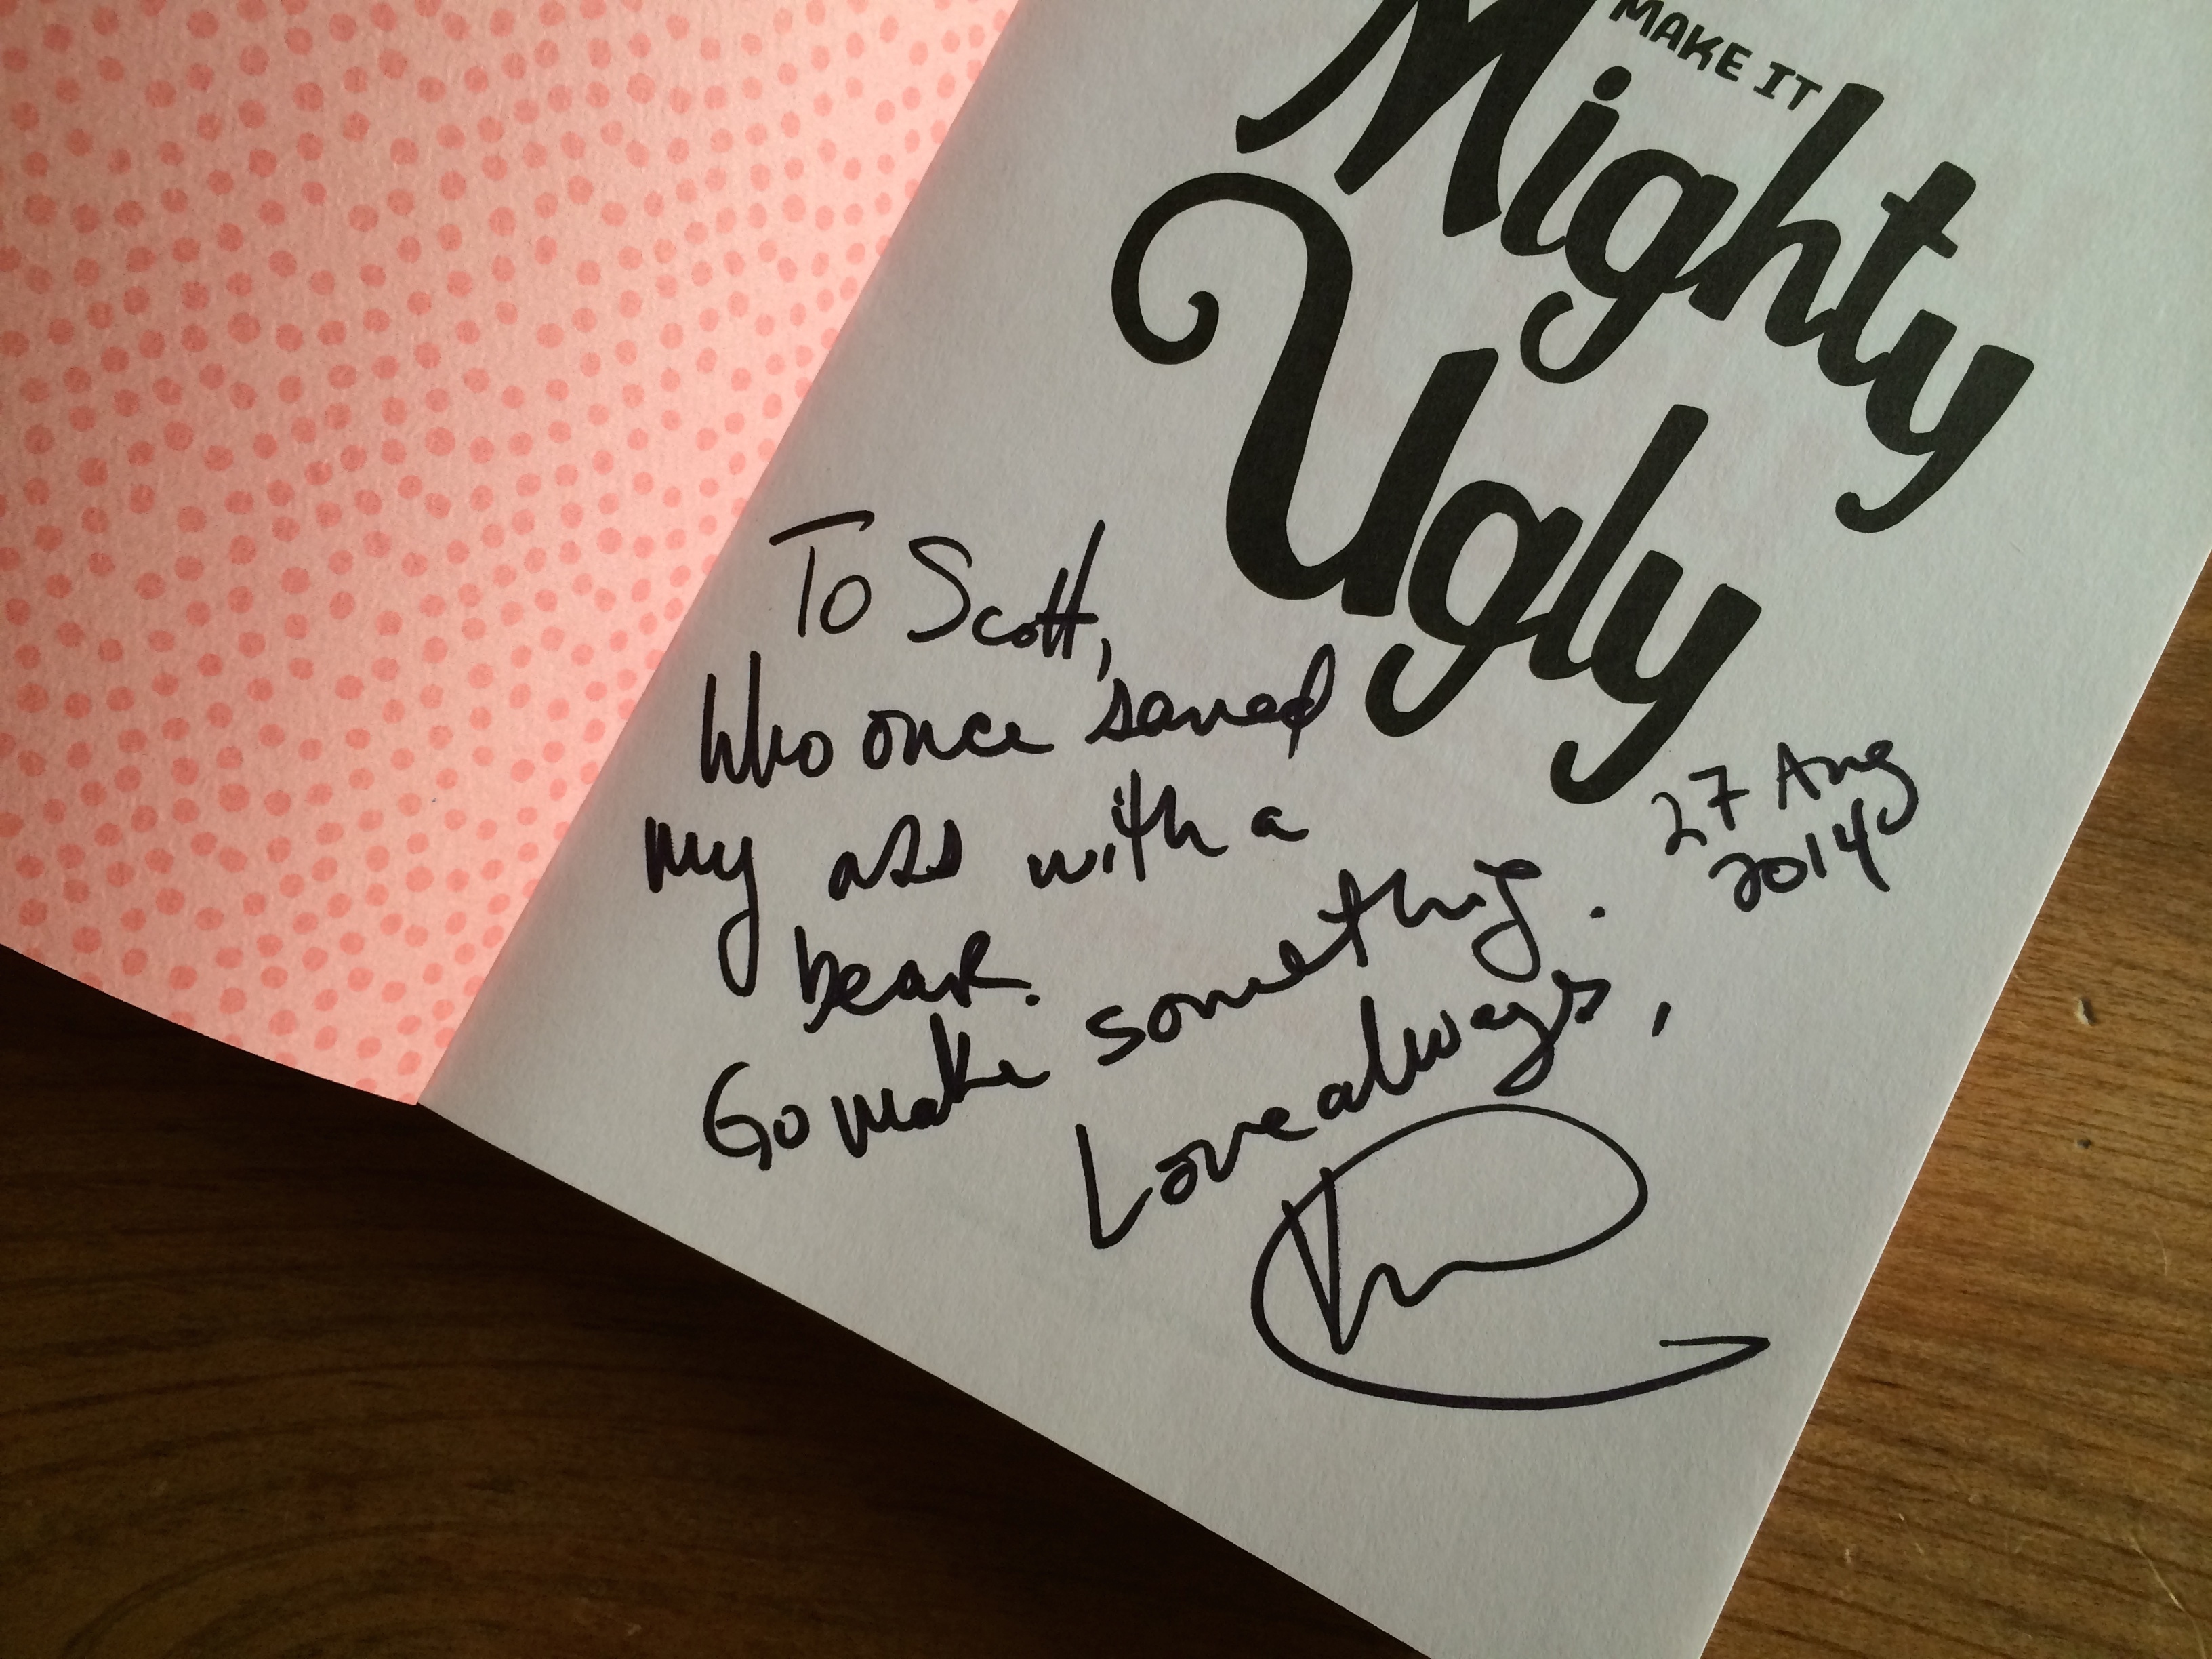 MAKE IT
Mighty
Ugly
To Scott,
Who once saved
my ass with a
bear.
Go make something.
Love always,
27 Aug
2014